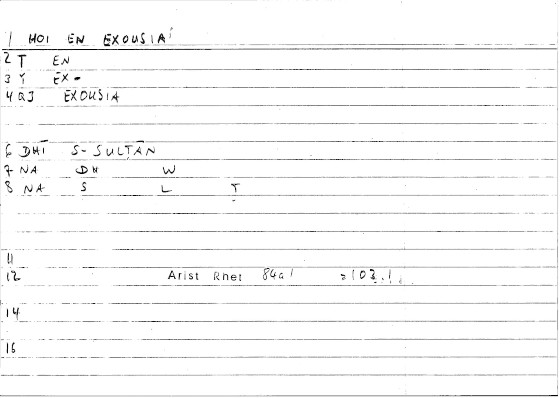 1 HOI EN EXOUSIAĪ
2 T EN
3 Y EX-
4 QJ EXOUSIA
6 DHĪ S-SULṬĀN
7 NA DH W
8 NA S L Ṭ
11
12 Arist Rhet 84a1 =103.1
14
16